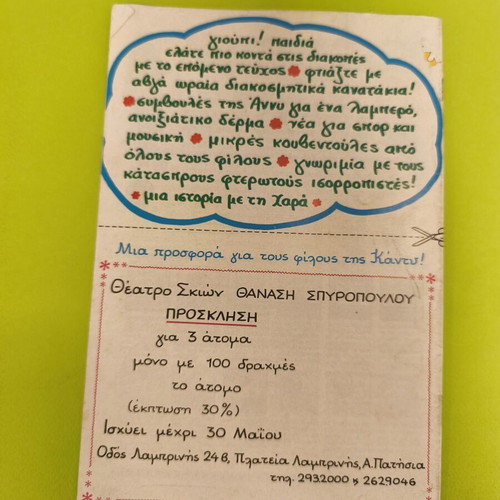 γιούπι! παιδιά
ελάτε πιο κοντά στις διακοπές
με το επόμενο τεύχος * φτιάξτε με
αβγά ωραία διακοσμητικά κανατάκια!
* συμβουλές της Άννυ για ένα λαμπερό,
ανοιξιάτικο δέρμα * νέα για σπορ και
μουσική * μικρές κουβεντούλες από
όλους τους φίλους * γνωριμία με τους
κάτασπρους φτερωτούς ισορροπιστές!
* μια ιστορία με τη Χαρά *
Μια προσφορά για τους φίλους της Κάντυ!
Θέατρο Σκιών ΘΑΝΑΣΗ ΣΠΥΡΟΠΟΥΛΟΥ
ΠΡΟΣΚΛΗΣΗ
για 3 άτομα
μόνο με 100 δραχμές
το άτομο
(έκπτωση 30%)
Ισχύει μέχρι 30 Μαΐου
Οδός Λαμπρινής 24β, Πλατεία Λαμπρινής, Α. Πατήσια
τηλ. 2932000 & 2629046